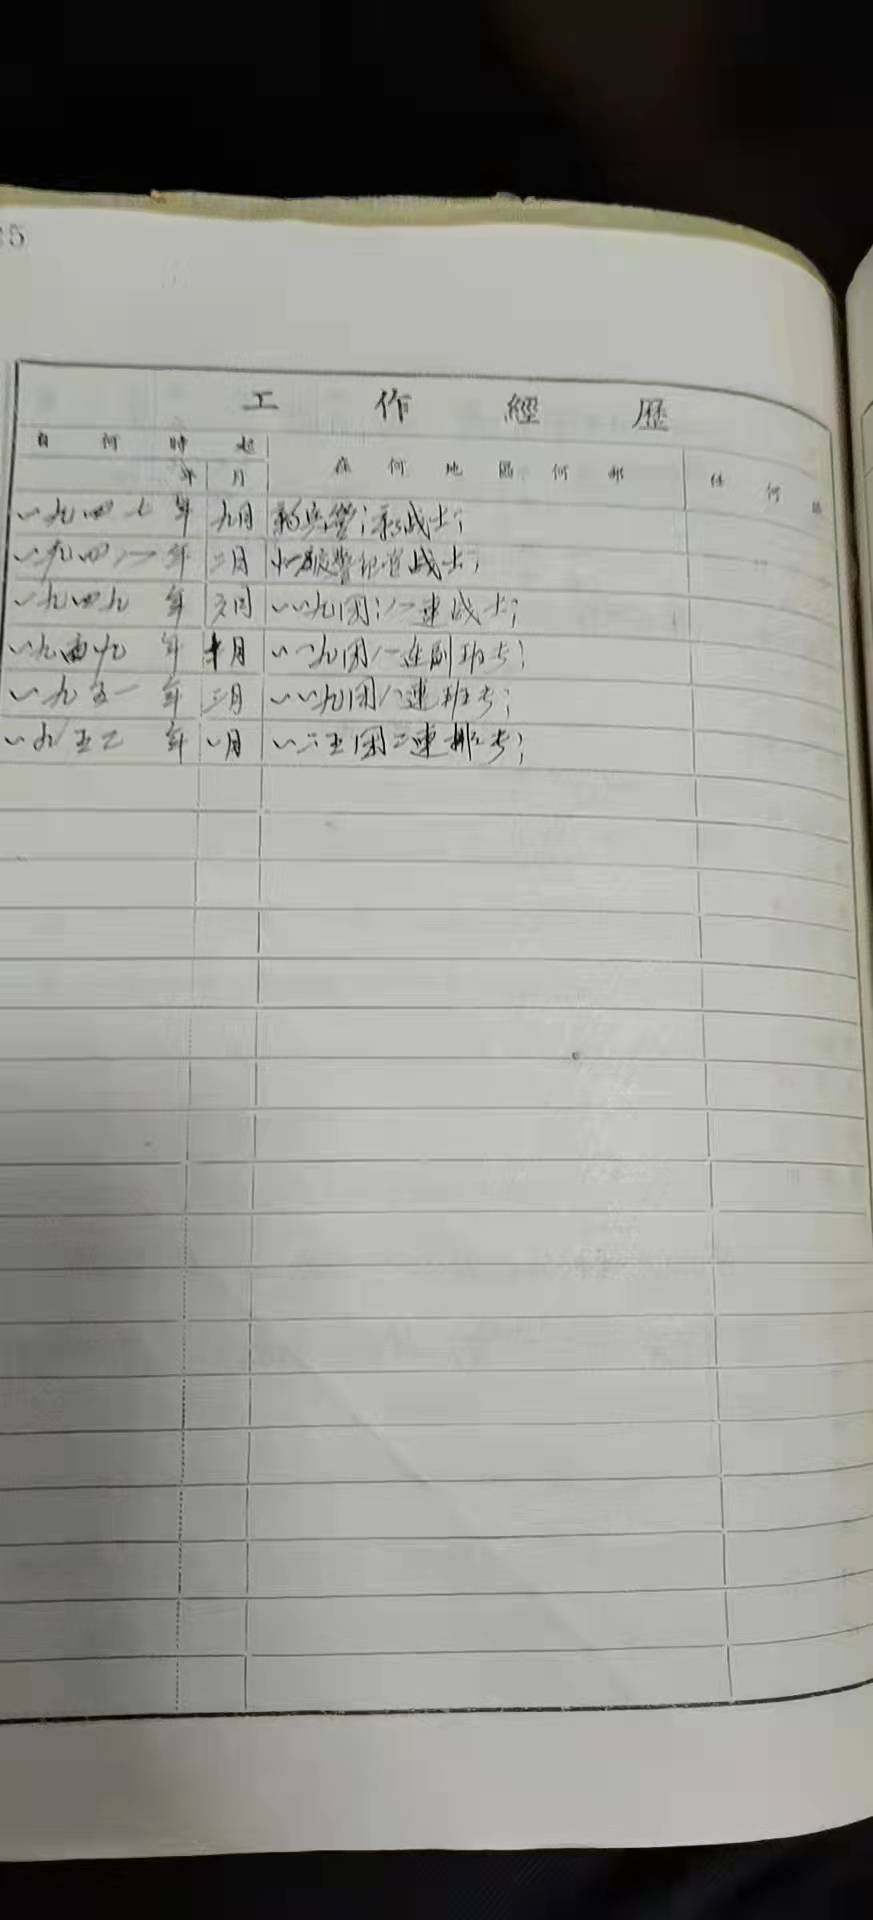 35
工作經歷
自何時起
年 月 在何地區何部 任何
一九四七年 九月 新兵营;新战士;
一九四八年 二月 战士;
一九四九年 元月 一八九团;八连战士;
一九四九年 十月 一八九团八连副班长;
一九五一年 三月 一八九团八连班长;
一九五二年 一月 一二五团二连排长;